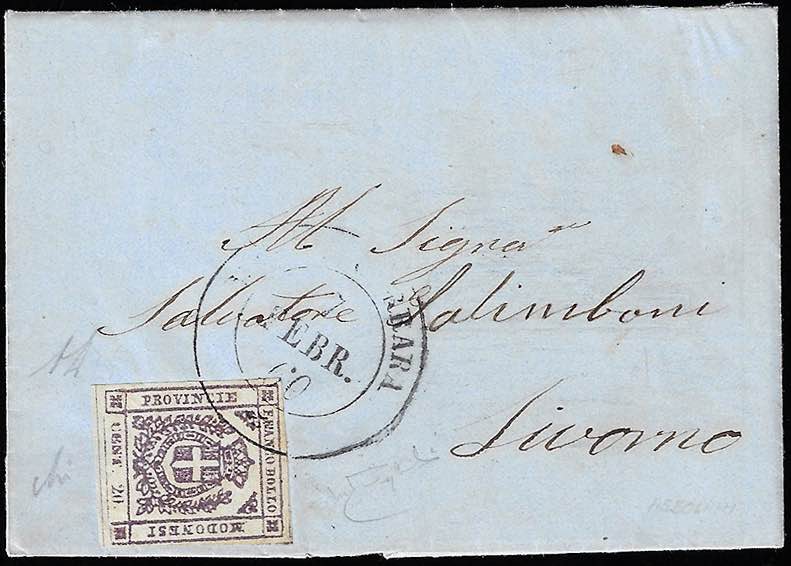 All Signor
Salvatore Salimboni
Livorno
FEBR.
60
PROVINCIE
FRANCO BOLLO
CENT. 20
MODONESI